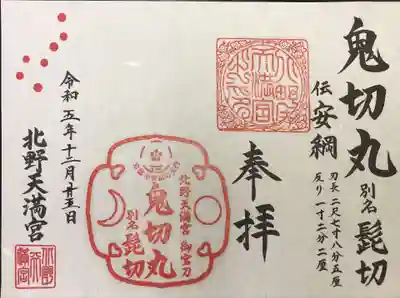 鬼切丸 別名 髭切
伝 安綱
刃長 二尺七寸八分五厘
反り 一寸二分二厘
奉拝
北野天満宮 御宝刀
鬼切丸
別名 髭切
令和五年十二月廿五日
北野天満宮